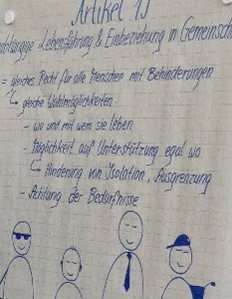 Artikel 19
Lebensführung & Einbeziehung in Gemeinsch
= gleiches Recht für alle Menschen mit Behinderungen
gleiche Wahlmöglichkeiten
- wo und mit wem sie leben
- Möglichkeit auf Unterstützung egal wo
Hinderung von Isolation, Ausgrenzung
- Achtung der Bedürfnisse